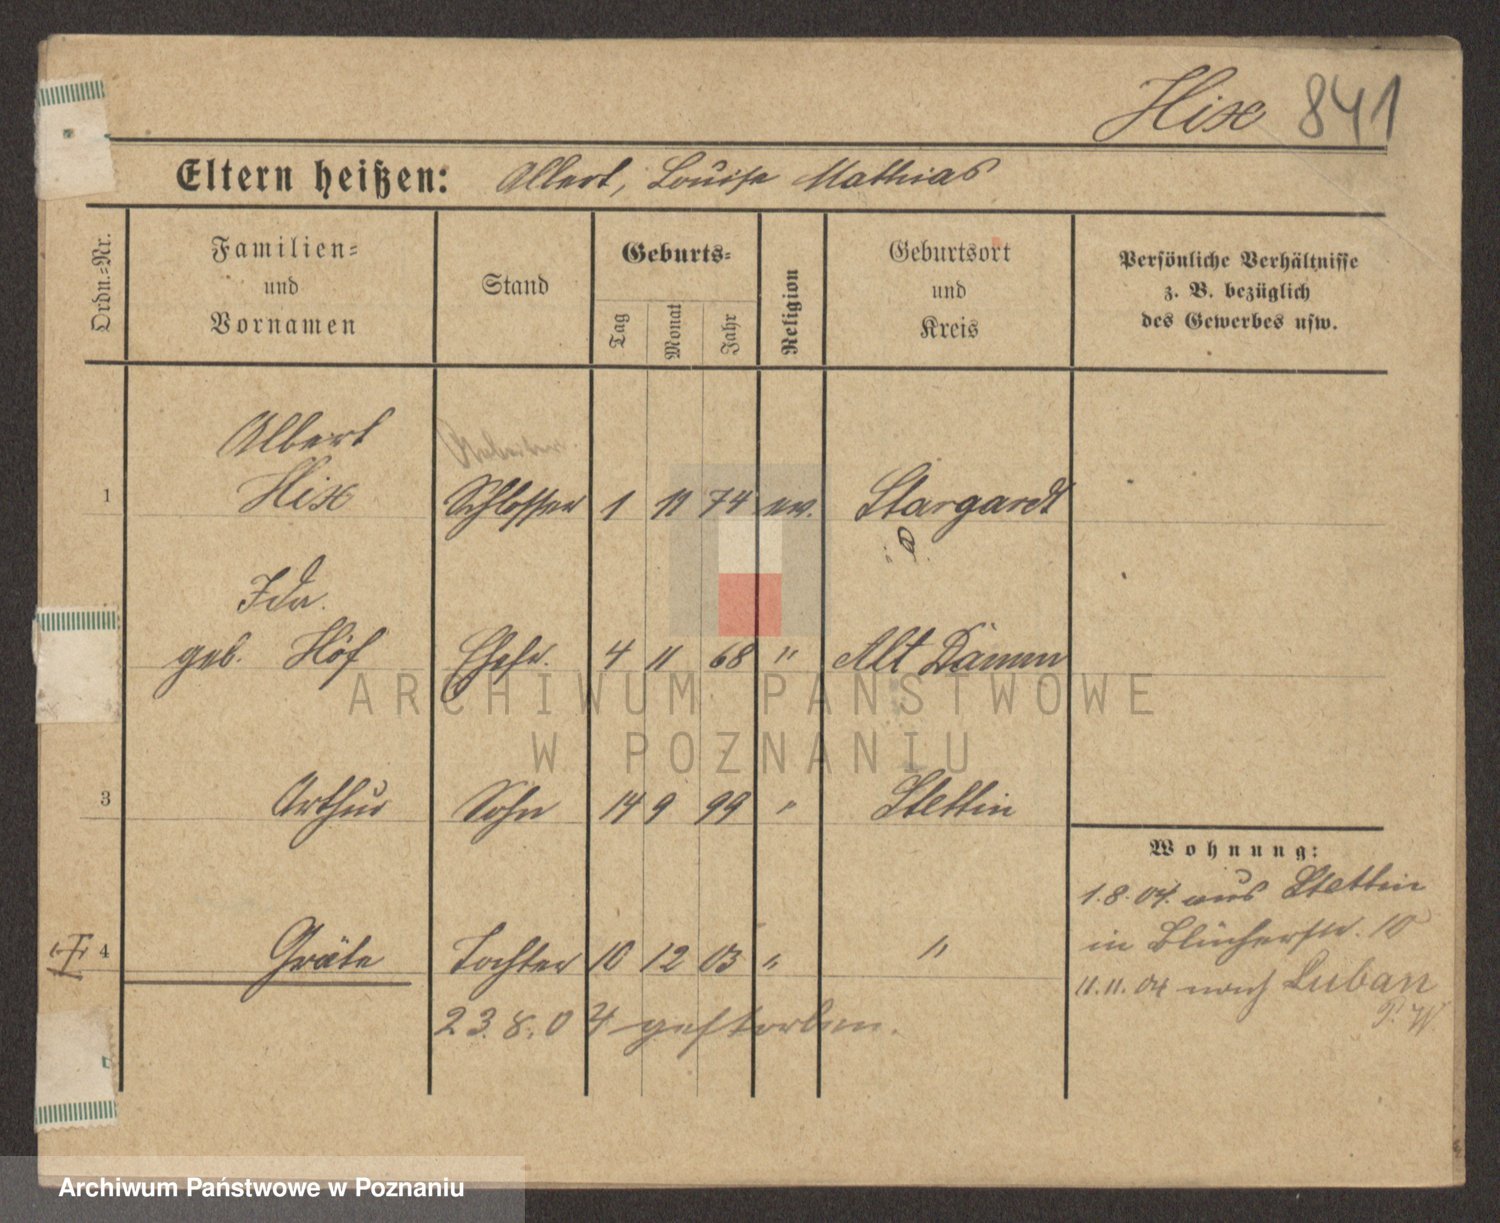 Hix 841
Eltern heißen: Albert, Louise Mathias
Ordn.=Nr.
Familien=
und
Vornamen
Stand
Geburts=
Tag
Monat
Jahr
Religion
Geburtsort
und
Kreis
Persönliche Verhältnisse
z. B. bezüglich
des Gewerbes usw.
Albert
1 Hix Schlosser 1 11 74 ev. Stargardt
Ida
geb. Höf Ehefr. 4 11 68 " Alt Damm
ARCHIWUM PAŃSTWOWE
W POZNANIU
3 Arthur Sohn 14 9 99 " Stettin
Wohnung:
1.8.04. aus Stettin
in Blücherstr. 10
4 Gräte Tochter 10 12 03 " "
11.11.04 nach Luban
P. W
23.8.04 gestorben.
Archiwum Państwowe w Poznaniu